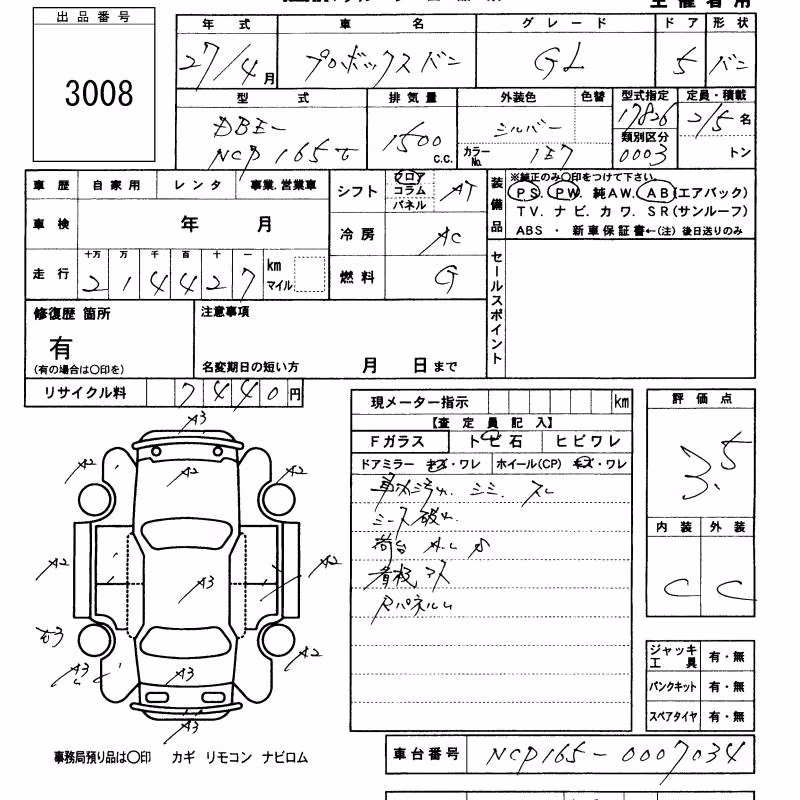 出品番号
3008
年式 車名 グレード ドア 形状
27/4月 プロボックスバン GL 5 バン
型式 排気量 外装色 色替 型式指定 定員・積載
DBE- 1500 c.c. シルバー 17826 2/5名
類別区分
NCP165 カラーNo. 1E7 0003 トン
車歴 自家用 レンタ 事業.営業車
シフト フロア コラム パネル AT
装備品
※純正のみ○印をつけて下さい。
PS. PW. 純AW. AB(エアバック)
TV. ナビ. カワ. SR(サンルーフ)
ABS ・ 新車保証書←(注) 後日送りのみ
車検 年 月
冷房 AC
走行 十万 万 千 百 十 一
214427 km マイル
燃料 G
セールスポイント
修復歴 箇所
有
(有の場合は○印を)
注意事項
名変期日の短い方 月 日まで
リサイクル料 7440円
現メーター指示 km
【査定員記入】
Fガラス トビ石 ヒビワレ
ドアミラー キズ・ワレ ホイール(CP) キズ・ワレ
車内汚れ. シミ. スレ
シース破れ
荷台
看板アト
Rパネルし
評価点
3.5
内装 外装
C C
A3
A2 A2 A2
A2 A3 A2
A3 A2
A3 A3
A3
ジャッキ工具 有・無
パンクキット 有・無
スペアタイヤ 有・無
事務局預り品は○印 カギ リモコン ナビロム
車台番号 NCP165-0007034